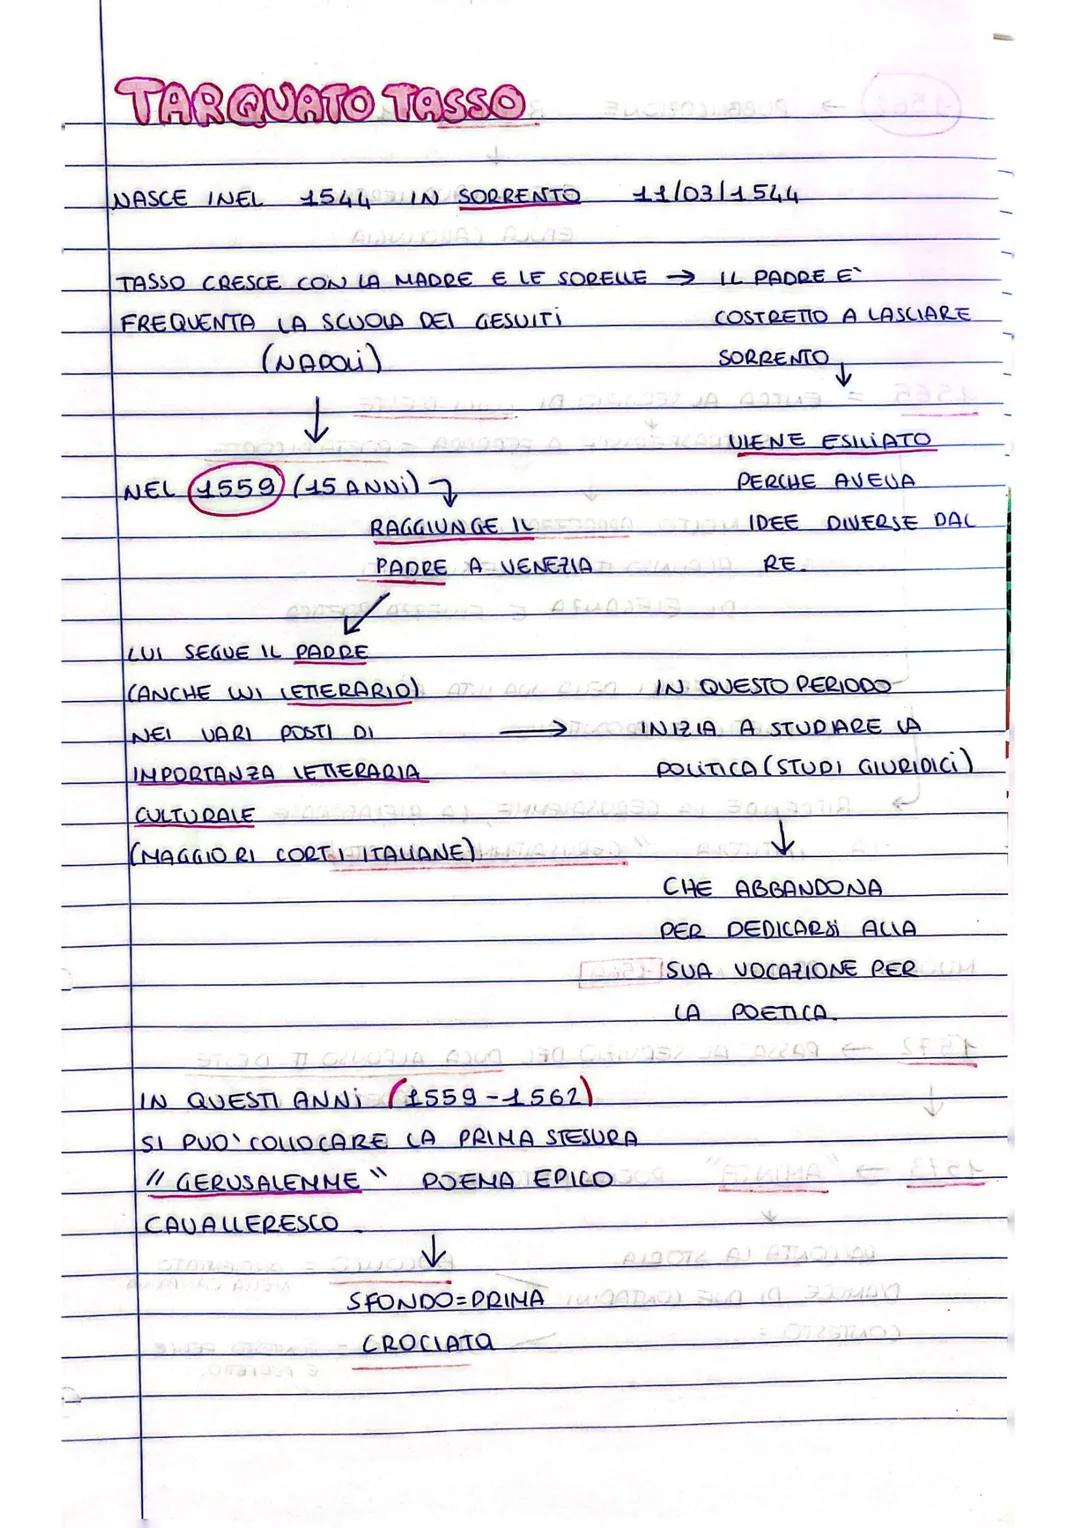 TARQUATO TASSO
NASCE INEL 1544 IN SORRENTO 11/03/1544
TASSO CRESCE CON LA MADRE E LE SORELLE → IL PADRE E'
FREQUENTA LA SCUOLA DEI GESUITI COSTRETTO A LASCIARE
(NAPOLI) SORRENTO
↓
↓
VIENE ESILIATO
NEL 1559 (15 ANNI) PERCHE AVEVA
RAGGIUNGE IL IDEE DIVERSE DAL
PADRE A VENEZIA RE.
LUI SEGUE IL PADRE
(ANCHE LUI LETTERARIO) IN QUESTO PERIODO
NEI VARI POSTI DI → INIZIA A STUDIARE LA
IMPORTANZA LETTERARIA POLITICA (STUDI GIURIDICI)
CULTURALE
(MAGGIORI CORTI ITALIANE) ↓
CHE ABBANDONA
PER DEDICARSI ALLA
SUA VOCAZIONE PER
LA POETICA.
IN QUESTI ANNI (1559-1562)
SI PUO' COLLOCARE LA PRIMA STESURA
"GERUSALEMME" POEMA EPICO
CAVALLERESCO
↓
SFONDO=PRIMA
CROCIATA